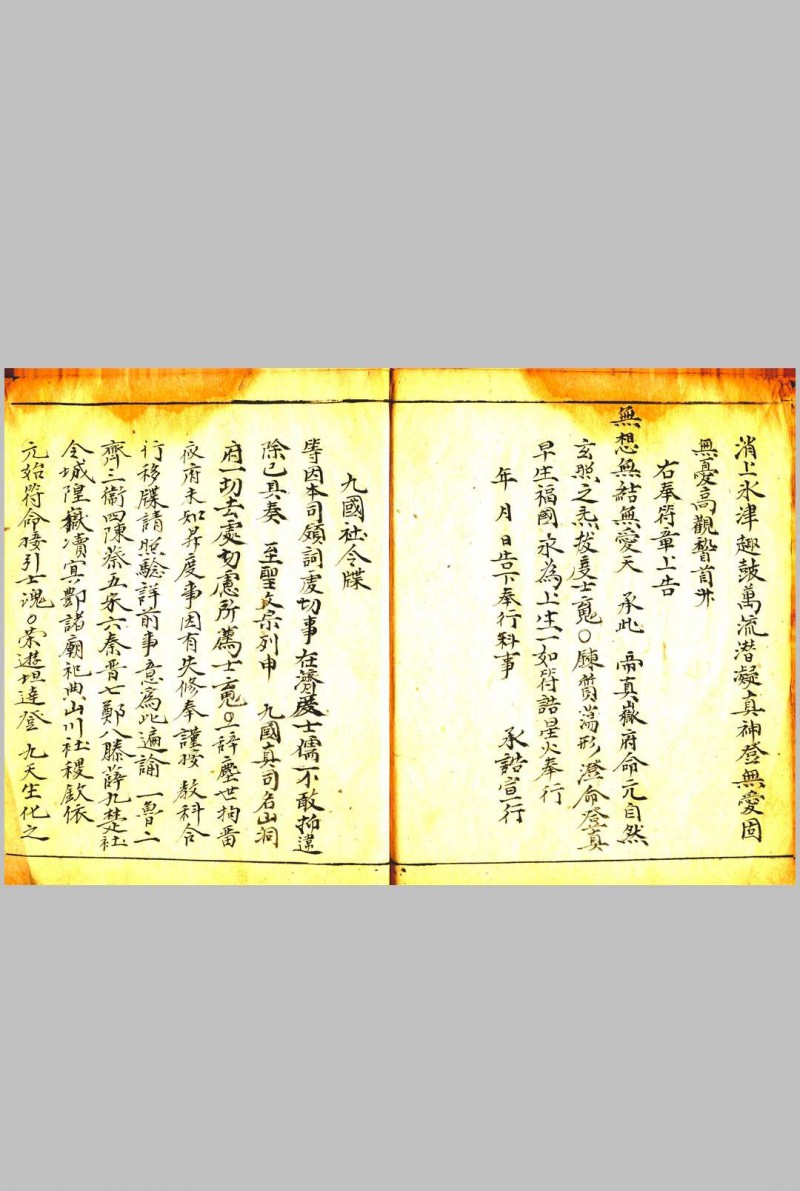 消上永津趣鼓萬流潛凝真神登無愛固
無憂高觀暫首卅
右奉符章上告
無想無結無愛天 承此 帝真嶽府命元自然
玄照之炁拔度士䰟〇鍊質蕩形澄命登真
早生福國永為上生一如符誥星火奉行
年 月 日告下奉行科事 承誥宣行
九國社令牒
等因本司領詞虔切事在濟度士儒不敢抑違
除已具奏 至聖文宗列申 九國真司名山洞
府一切去處切慮所薦士䰟〇一辞塵世拘畨
夜府未知昇度事因有失修奉謹按 教科合
行移牒請照驗詳前事意為此遍諭 一魯二
齊三衛四陳蔡五宋六秦晋七鄭八滕薛九楚社
令城隍嶽瀆冥酆諸廟祀典山川社稷欽依
元始符命接引士魂〇榮遊坦逹登 九天生化之